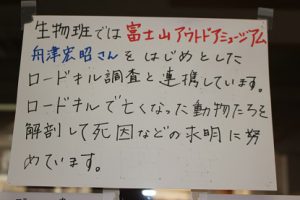 生物班では富士山アウトドアミュージアム
舟津宏昭さんをはじめとした
ロードキル調査と連携しています。
ロードキルで亡くなった動物たちを
解剖して死因などの求明に努
めています。